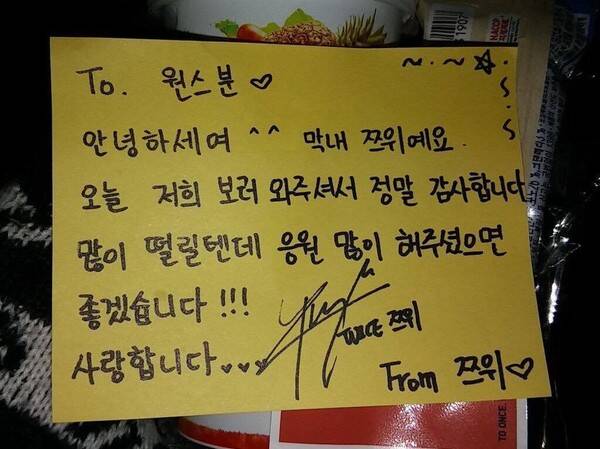 To. 원스분♡
안녕하세여 ^^ 막내 쯔위예요.
오늘 저희 보러 와주셔서 정말 감사합니다
많이 떨릴텐데 응원 많이 해주셨으면
좋겠습니다!!!
사랑합니다♥♥♥
TWICE 쯔위
From 쯔위♡
HACCP
TO ONCE.